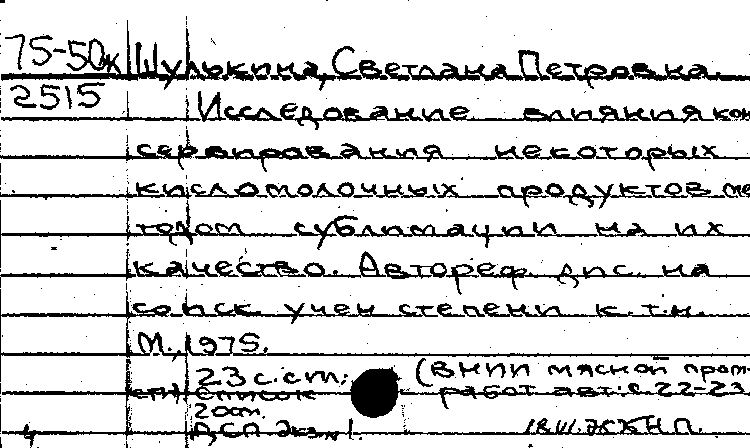 75-50к Шулькина, Светлана Петровна.
2515 Исследование влияния кон
сервирования некоторых
кисломолочных продуктов ме
тодом сублимации на их
качество. Автореф. дис. на
соиск. учен степени к.т.н.
М., 1975.
23 с. ст.; (ВНИИ мясной пром-
Список работ авт.: с. 22-23
20 ст.
4 ДСП Экз. №1. 18.VI.